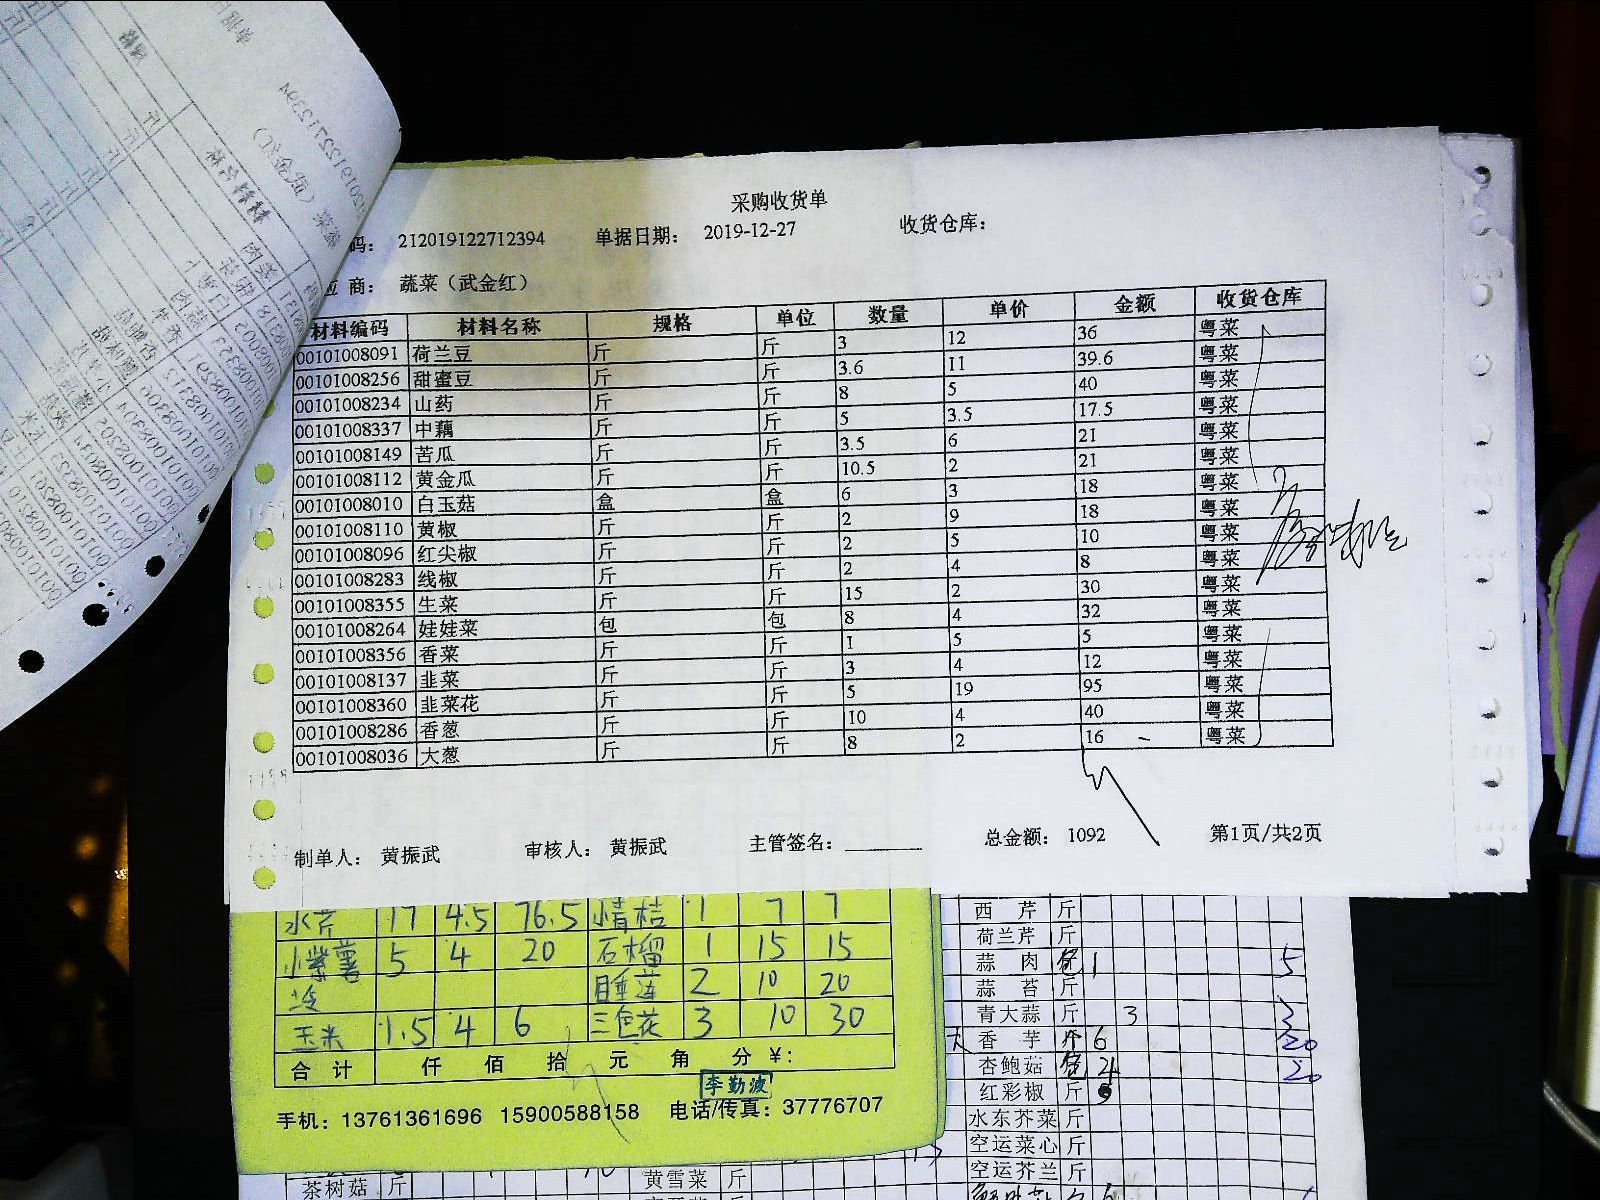 采购收货单
码： 212019122712394 单据日期： 2019-12-27 收货仓库：
应 商： 蔬菜（武金红）
材料编码 材料名称 规格 单位 数量 单价 金额 收货仓库
00101008091 荷兰豆 斤 斤 3 12 36 粤菜
00101008256 甜蜜豆 斤 斤 3.6 11 39.6 粤菜
00101008234 山药 斤 斤 8 5 40 粤菜
00101008337 中藕 斤 斤 5 3.5 17.5 粤菜
00101008149 苦瓜 斤 斤 3.5 6 21 粤菜
00101008112 黄金瓜 斤 斤 10.5 2 21 粤菜
00101008010 白玉菇 盒 盒 6 3 18 粤菜
00101008110 黄椒 斤 斤 2 9 18 粤菜
00101008096 红尖椒 斤 斤 2 5 10 粤菜
00101008283 线椒 斤 斤 2 4 8 粤菜
00101008355 生菜 斤 斤 15 2 30 粤菜
00101008264 娃娃菜 包 包 8 4 32 粤菜
00101008356 香菜 斤 斤 1 5 5 粤菜
00101008137 韭菜 斤 斤 3 4 12 粤菜
00101008360 韭菜花 斤 斤 5 19 95 粤菜
00101008286 香葱 斤 斤 10 4 40 粤菜
00101008036 大葱 斤 斤 8 2 16 粤菜
制单人： 黄振武 审核人： 黄振武 主管签名： 总金额： 1092 第1页/共2页
水芹 17 4.5 76.5 情桔 1 7 7
小紫薯 5 4 20 石榴 1 15 15
睡莲 2 10 20
玉米 1.5 4 6 三色花 3 10 30
合 计 仟 佰 拾 元 角 分 ¥:
李勤波
手机：13761361696 15900588158 电话/传真：37776707
西 芹 斤
荷兰芹 斤
蒜 肉 包 1 5
蒜 苔 斤
青大蒜 斤 3 3
香 芋 斤 6 20
杏鲍菇 4 20
红彩椒 斤
水东芥菜 斤
空运菜心 斤
空运芥兰 斤
茶树菇 斤
黄雪菜 斤